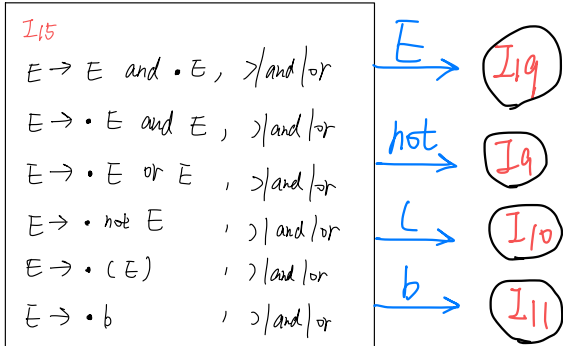 I15
E → E and · E , )/and/or
E → · E and E , )/and/or
E → · E or E , )/and/or
E → · not E , )/and/or
E → · (E) , )/and/or
E → · b , )/and/or
E
I19
not
I9
(
I10
b
I11